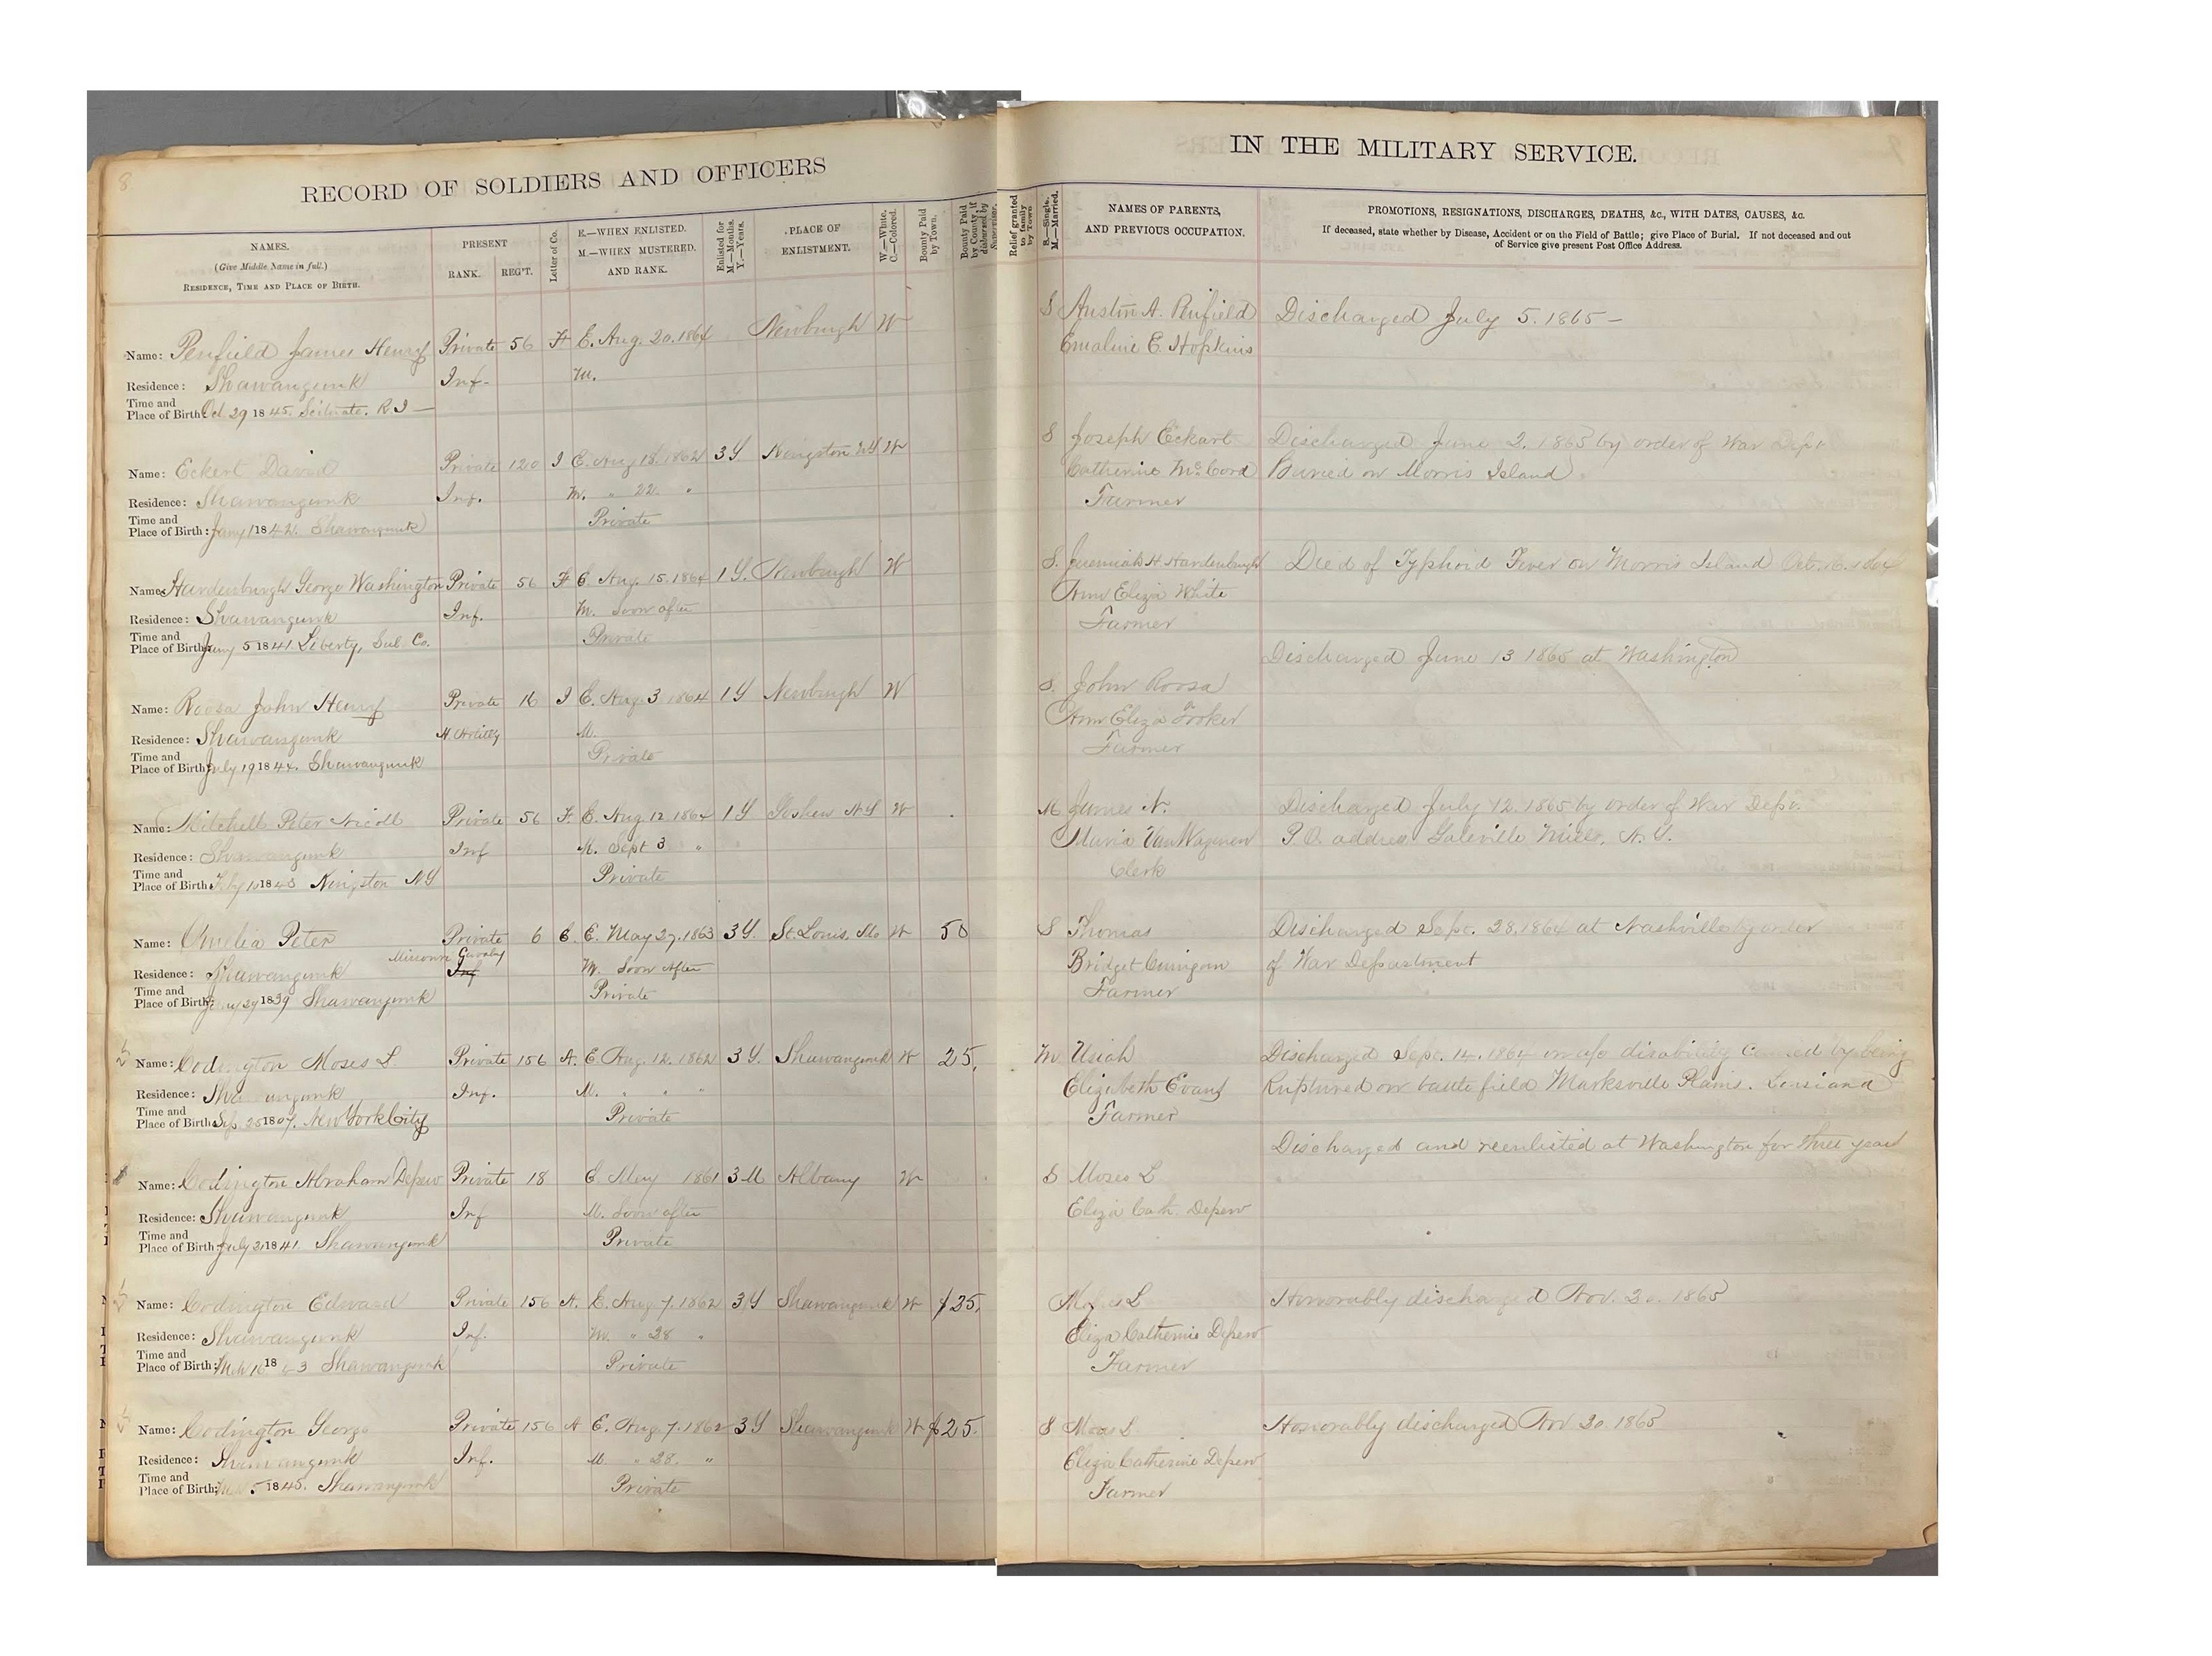 8
RECORD OF SOLDIERS AND OFFICERS
NAMES.
(Give Middle Name in full.)
RESIDENCE, TIME AND PLACE OF BIRTH.
PRESENT
RANK.
REG'T.
Letter of Co.
E.—WHEN ENLISTED.
M.—WHEN MUSTERED.
AND RANK.
Enlisted for
M.—Months.
Y.—Years.
PLACE OF
ENLISTMENT.
W.—White.
C.—Colored.
Bounty Paid
by Town.
Bounty Paid
by County, if
disbursed by
Supervisor.
Name: Penfield James Henry Private 56 F E. Aug. 20. 1864 Newburgh W
Residence: Shawangunk Inf. M.
Time and
Place of Birth: Oct 29 1845. Scituate. R.I —
Name: Eckert David Private 120 I E. Aug 18. 1862 3Y Kingston NY W
Residence: Shawangunk Inf. M. " 22 "
Time and Private
Place of Birth: Jany 1 1842. Shawangunk
Name: Hardenburgh George Washington Private 56 F E Aug. 15. 1864 1Y. Newburgh W
Residence: Shawangunk Inf. M. Soon after
Time and Private
Place of Birth: Jany 5 1841. Liberty, Sul. Co.
Name: Roosa John Henry Private 16 I E. Aug 3 1864 1Y Newburgh W
Residence: Shawangunk H. Artilly M.
Time and Private
Place of Birth: July 19 1844. Shawangunk
Name: Mitchell Peter Nicoll Private 56 F. E. Aug 12 1864 1Y Goshen N.Y W
Residence: Shawangunk Inf M. Sept 3 "
Time and Private
Place of Birth 1843 Kingston NY
Name: Omelia Peter Private 6 C. E. May 27. 1863 3Y. St. Louis, Mo W 50
Missouri Cavalry
Residence: Shawangunk Inf M. Soon After
Time and Private
Place of Birth: 29 1839 Shawangunk
Name: Codington Moses L. Private 156 A. E Aug. 12. 1862 3Y. Shawangunk W 25,
Residence: Shawangunk Inf. M. " "
Time and Private
Place of Birth: Sep. 25 1807. New York City
Name: Codington Abraham Depew Private 18 E May 1861 3M Albany W
Residence: Shawangunk Inf M. Soon after
Time and Private
Place of Birth July 21 1841. Shawangunk
Name: Codington Edward Private 156 A. E. Aug 7. 1862 3Y Shawangunk W $25,
Residence: Shawangunk Inf. M. " 28 "
Time and Private
Place of Birth: 16 1843 Shawangunk
Name: Codington George Private 156 A E. Aug. 7. 1862 3Y Shawangunk W $25.
Residence: Shawangunk Inf. M. " 28. "
Time and Private
Place of Birth: 5 1845. Shawangunk
IN THE MILITARY SERVICE.
9
Relief granted
to family
by Town
S.—Single.
M.—Married.
NAMES OF PARENTS,
AND PREVIOUS OCCUPATION.
PROMOTIONS, RESIGNATIONS, DISCHARGES, DEATHS, &c., WITH DATES, CAUSES, &c.
If deceased, state whether by Disease, Accident or on the Field of Battle; give Place of Burial. If not deceased and out
of Service give present Post Office Address.
S Austin A. Penfield Discharged July 5. 1865 —
Emaline E. Hopkins
S Joseph Eckart Discharged June 2. 1863 by order of War Dept
Catherine McCord Buried on Morris Island.
Farmer
S. Jeremiah H. Hardenburgh Died of Typhoid Fever on Morris Island Oct 1864
Ann Eliza White
Farmer
Discharged June 13 1865 at Washington
S. John Roosa
Ann Eliza Tooker
Farmer
M James N. Discharged July 12. 1865 by order of War Dept.
Maria VanWagenen P.O. address Galeville Mills, N.Y.
Clerk
S Thomas Discharged Sept. 28. 1864 at Nashville by order
Bridget of War Department
Farmer
M Usiah Discharged Sept. 14. 1864 on a/c disability caused by being
Elizabeth Evans Ruptured on battle field Marksville Plains. Lousiana
Farmer
Discharged and reenlisted at Washington for three years
S Moses L
Eliza Cath. Depew
Moses L Honorably discharged Nov. 20. 1865
Eliza Catherine Depew
Farmer
S Moses L Honorably discharged Nov 20. 1865
Eliza Catherine Depew
Farmer